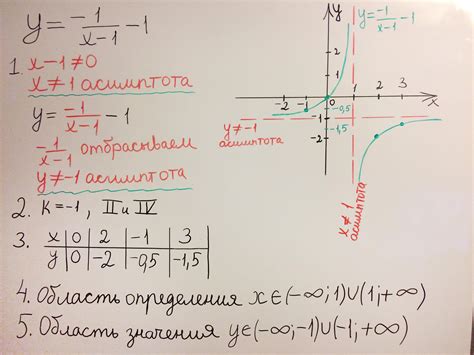 y = -1/(x-1) -1
1. x-1≠0
x≠1 асимптота
y = -1/(x-1) -1
-1/(x-1) отбрасываем
y≠-1 асимптота
2. K=-1, II и IV
3. x | 0 | 2 | -1 | 3
y | 0 | -2 | -0,5 | -1,5
4. Область определения x∈(-∞;1)∪(1;+∞)
5. Область значения y∈(-∞;-1)∪(-1;+∞)
y
y = -1/(x-1) -1
3
2
1
-2 -1 0 1 2 3 x
-0,5
-1
-1,5
-2
y≠-1
асимптота
x≠1
асимптота